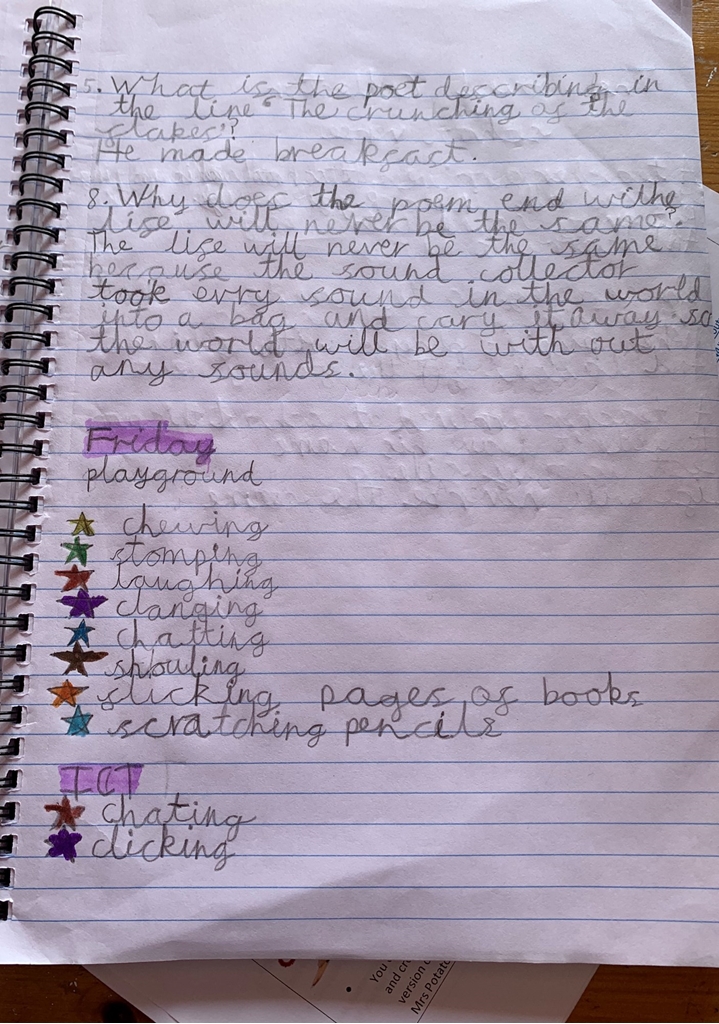 5. What is the poet describing in
the line "The crunching of the
flakes"?
He made breakfast.
8. Why does the poem end withe
life will never be the same?
The life will never be the same
because the sound collector
took evry sound in the world
into a bag and cary it away so
the world will be with out
any sounds.
Friday
playground
chewing
stomping
laughing
clanging
chatting
shouting
flicking pages of books
scratching pencils
ICT
chating
clicking
You
and cr
version o
Mrs Potato